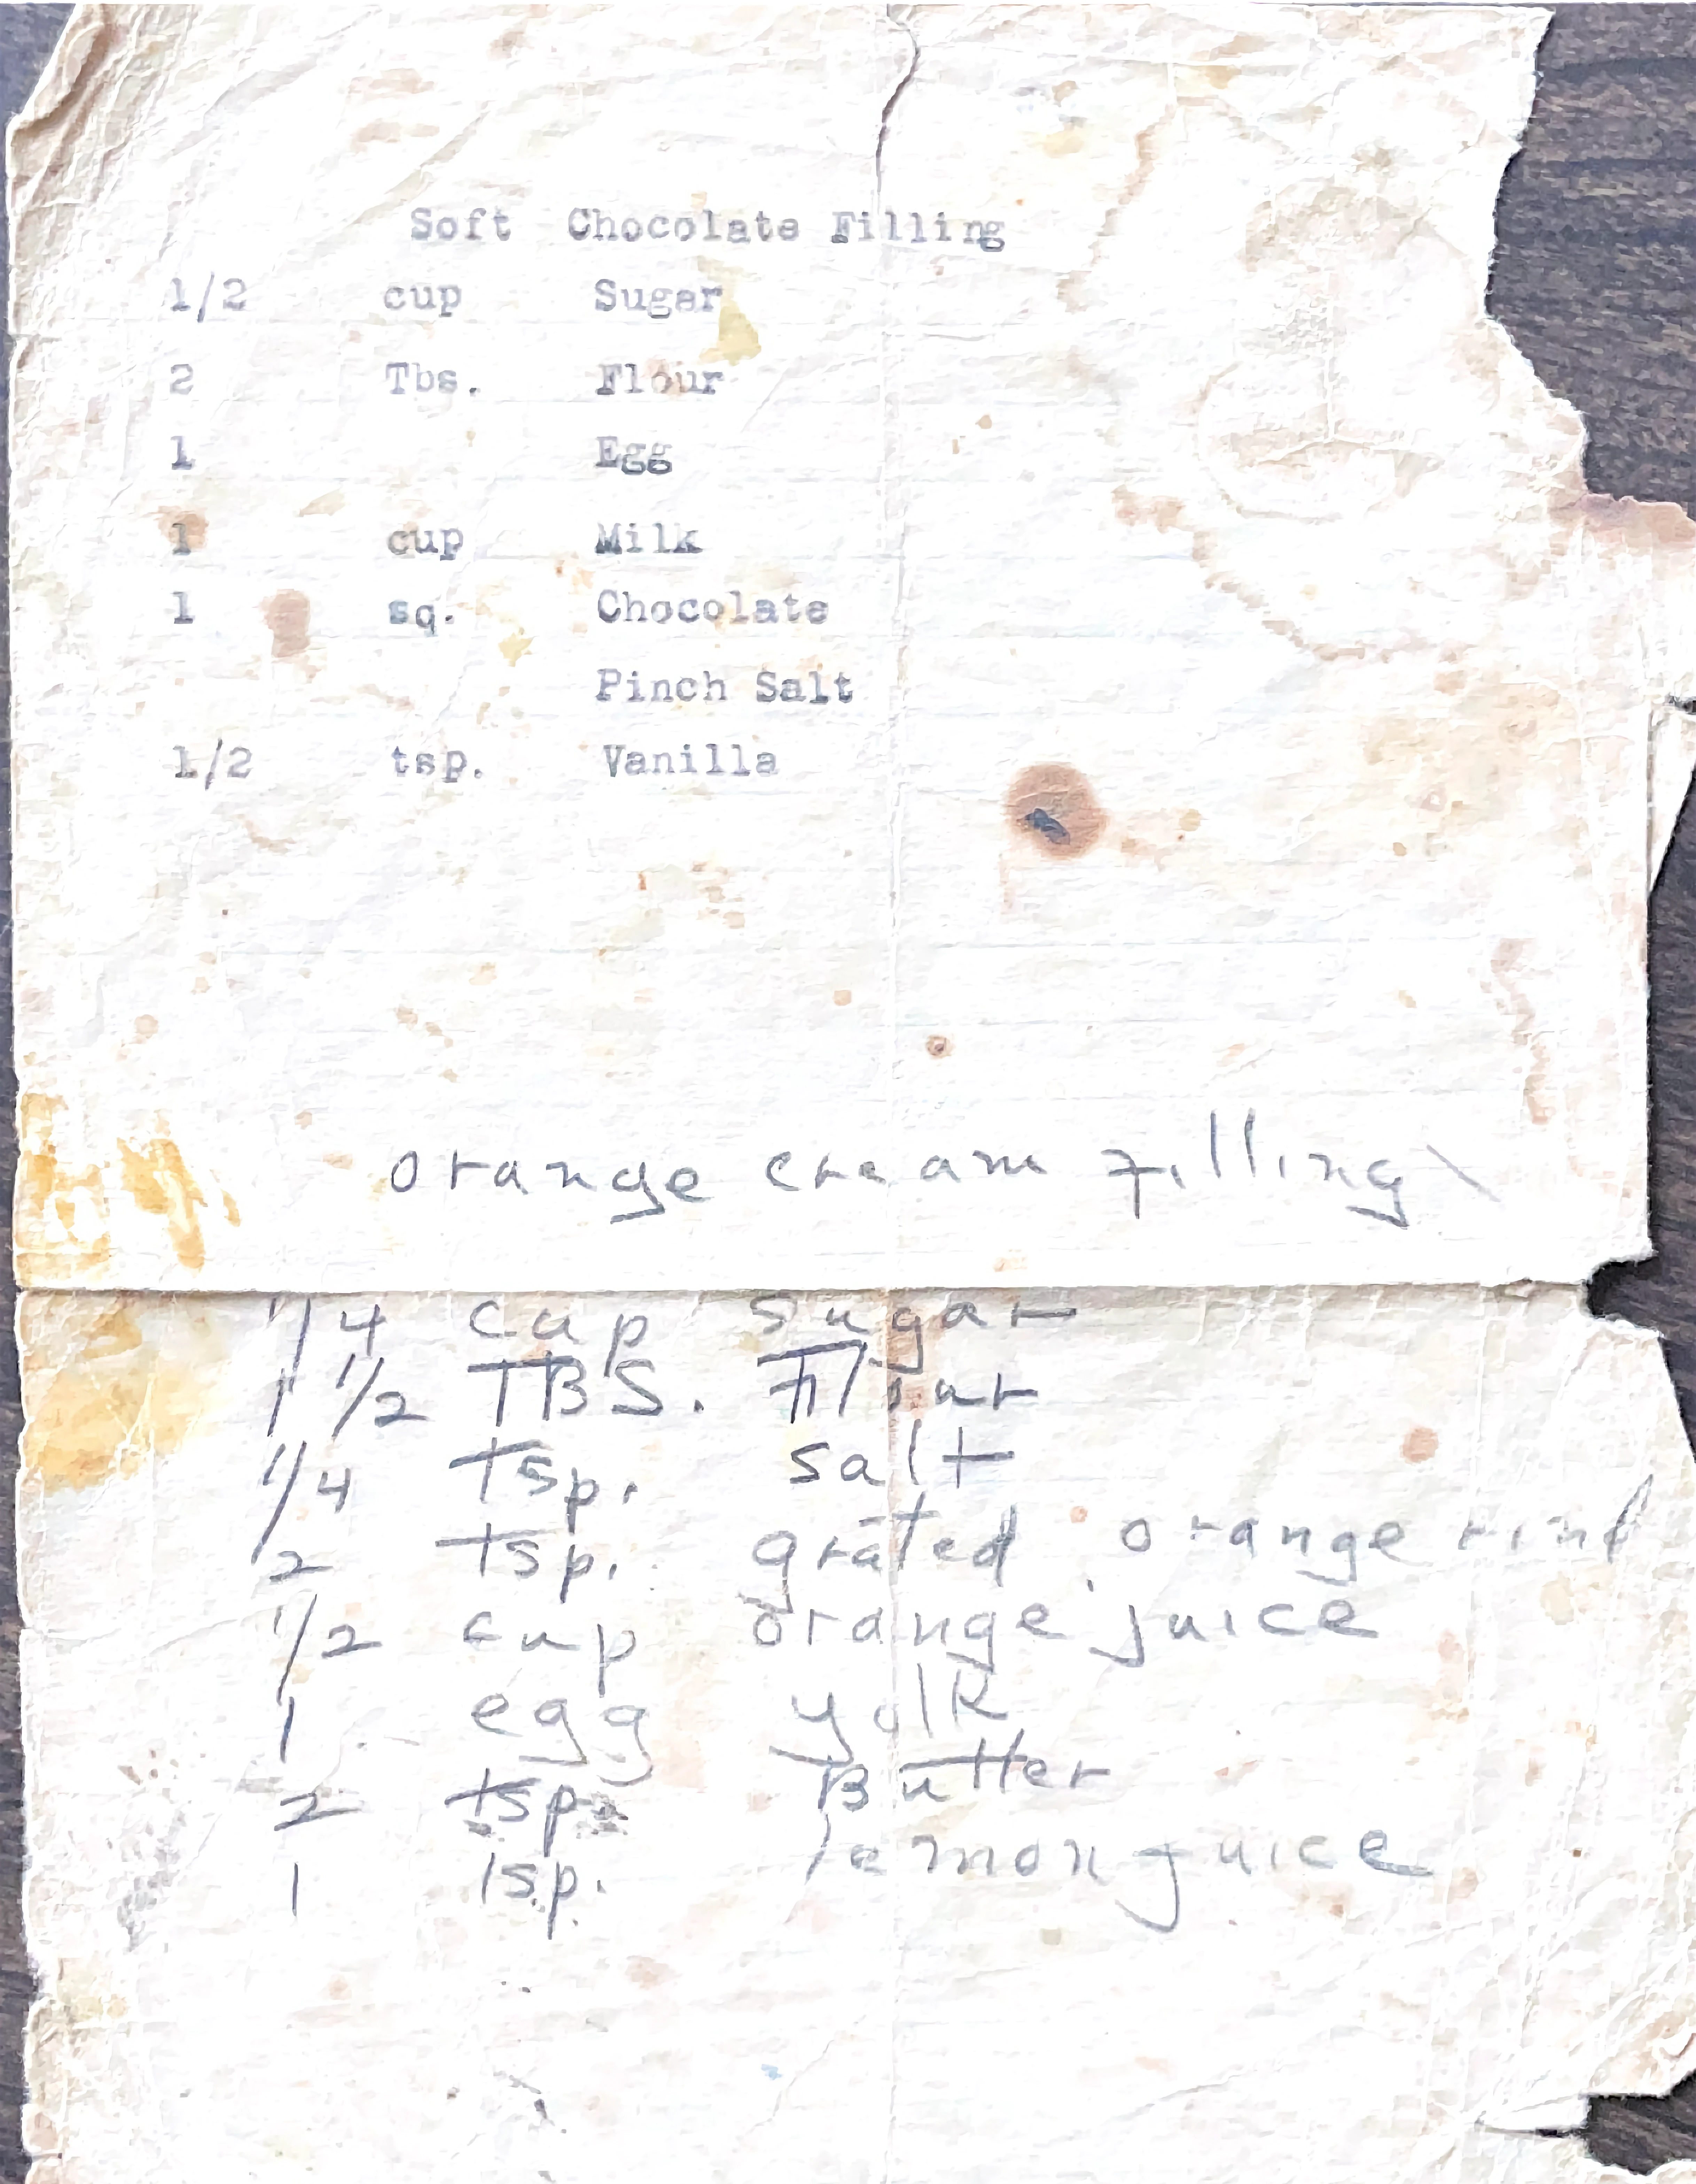 Soft Chocolate Filling
1/2 cup Sugar
2 Tbs. Flour
1 Egg
1 cup Milk
1 sq. Chocolate
Pinch Salt
1/2 tsp. Vanilla
orange cream filling
1/4 cup sugar
1 1/2 TBS. Flour
1/4 tsp. salt
2 tsp. grated orange rind
1/2 cup orange juice
1 egg yolk
2 tsp. Butter
1 tsp. lemon juice